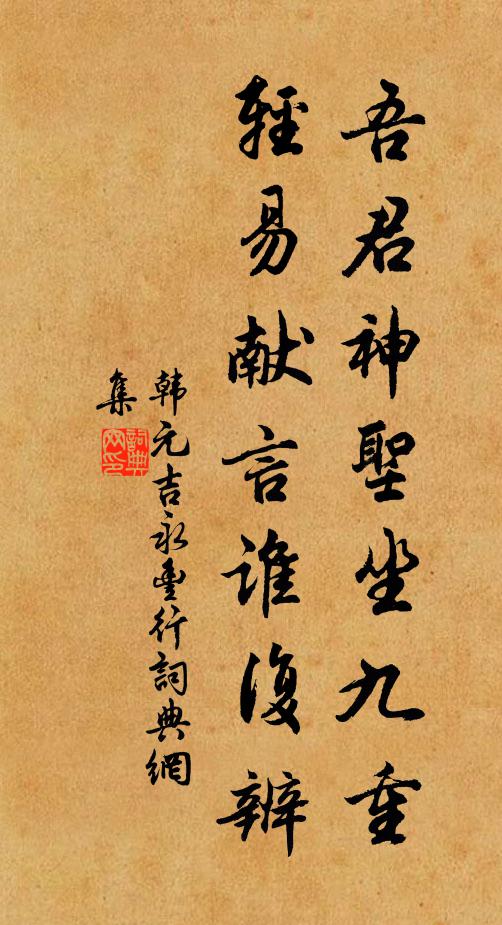 吾君神聖坐九重
輕易献言谁復辨
韩元吉永豐行詞典網
集
詞典網印